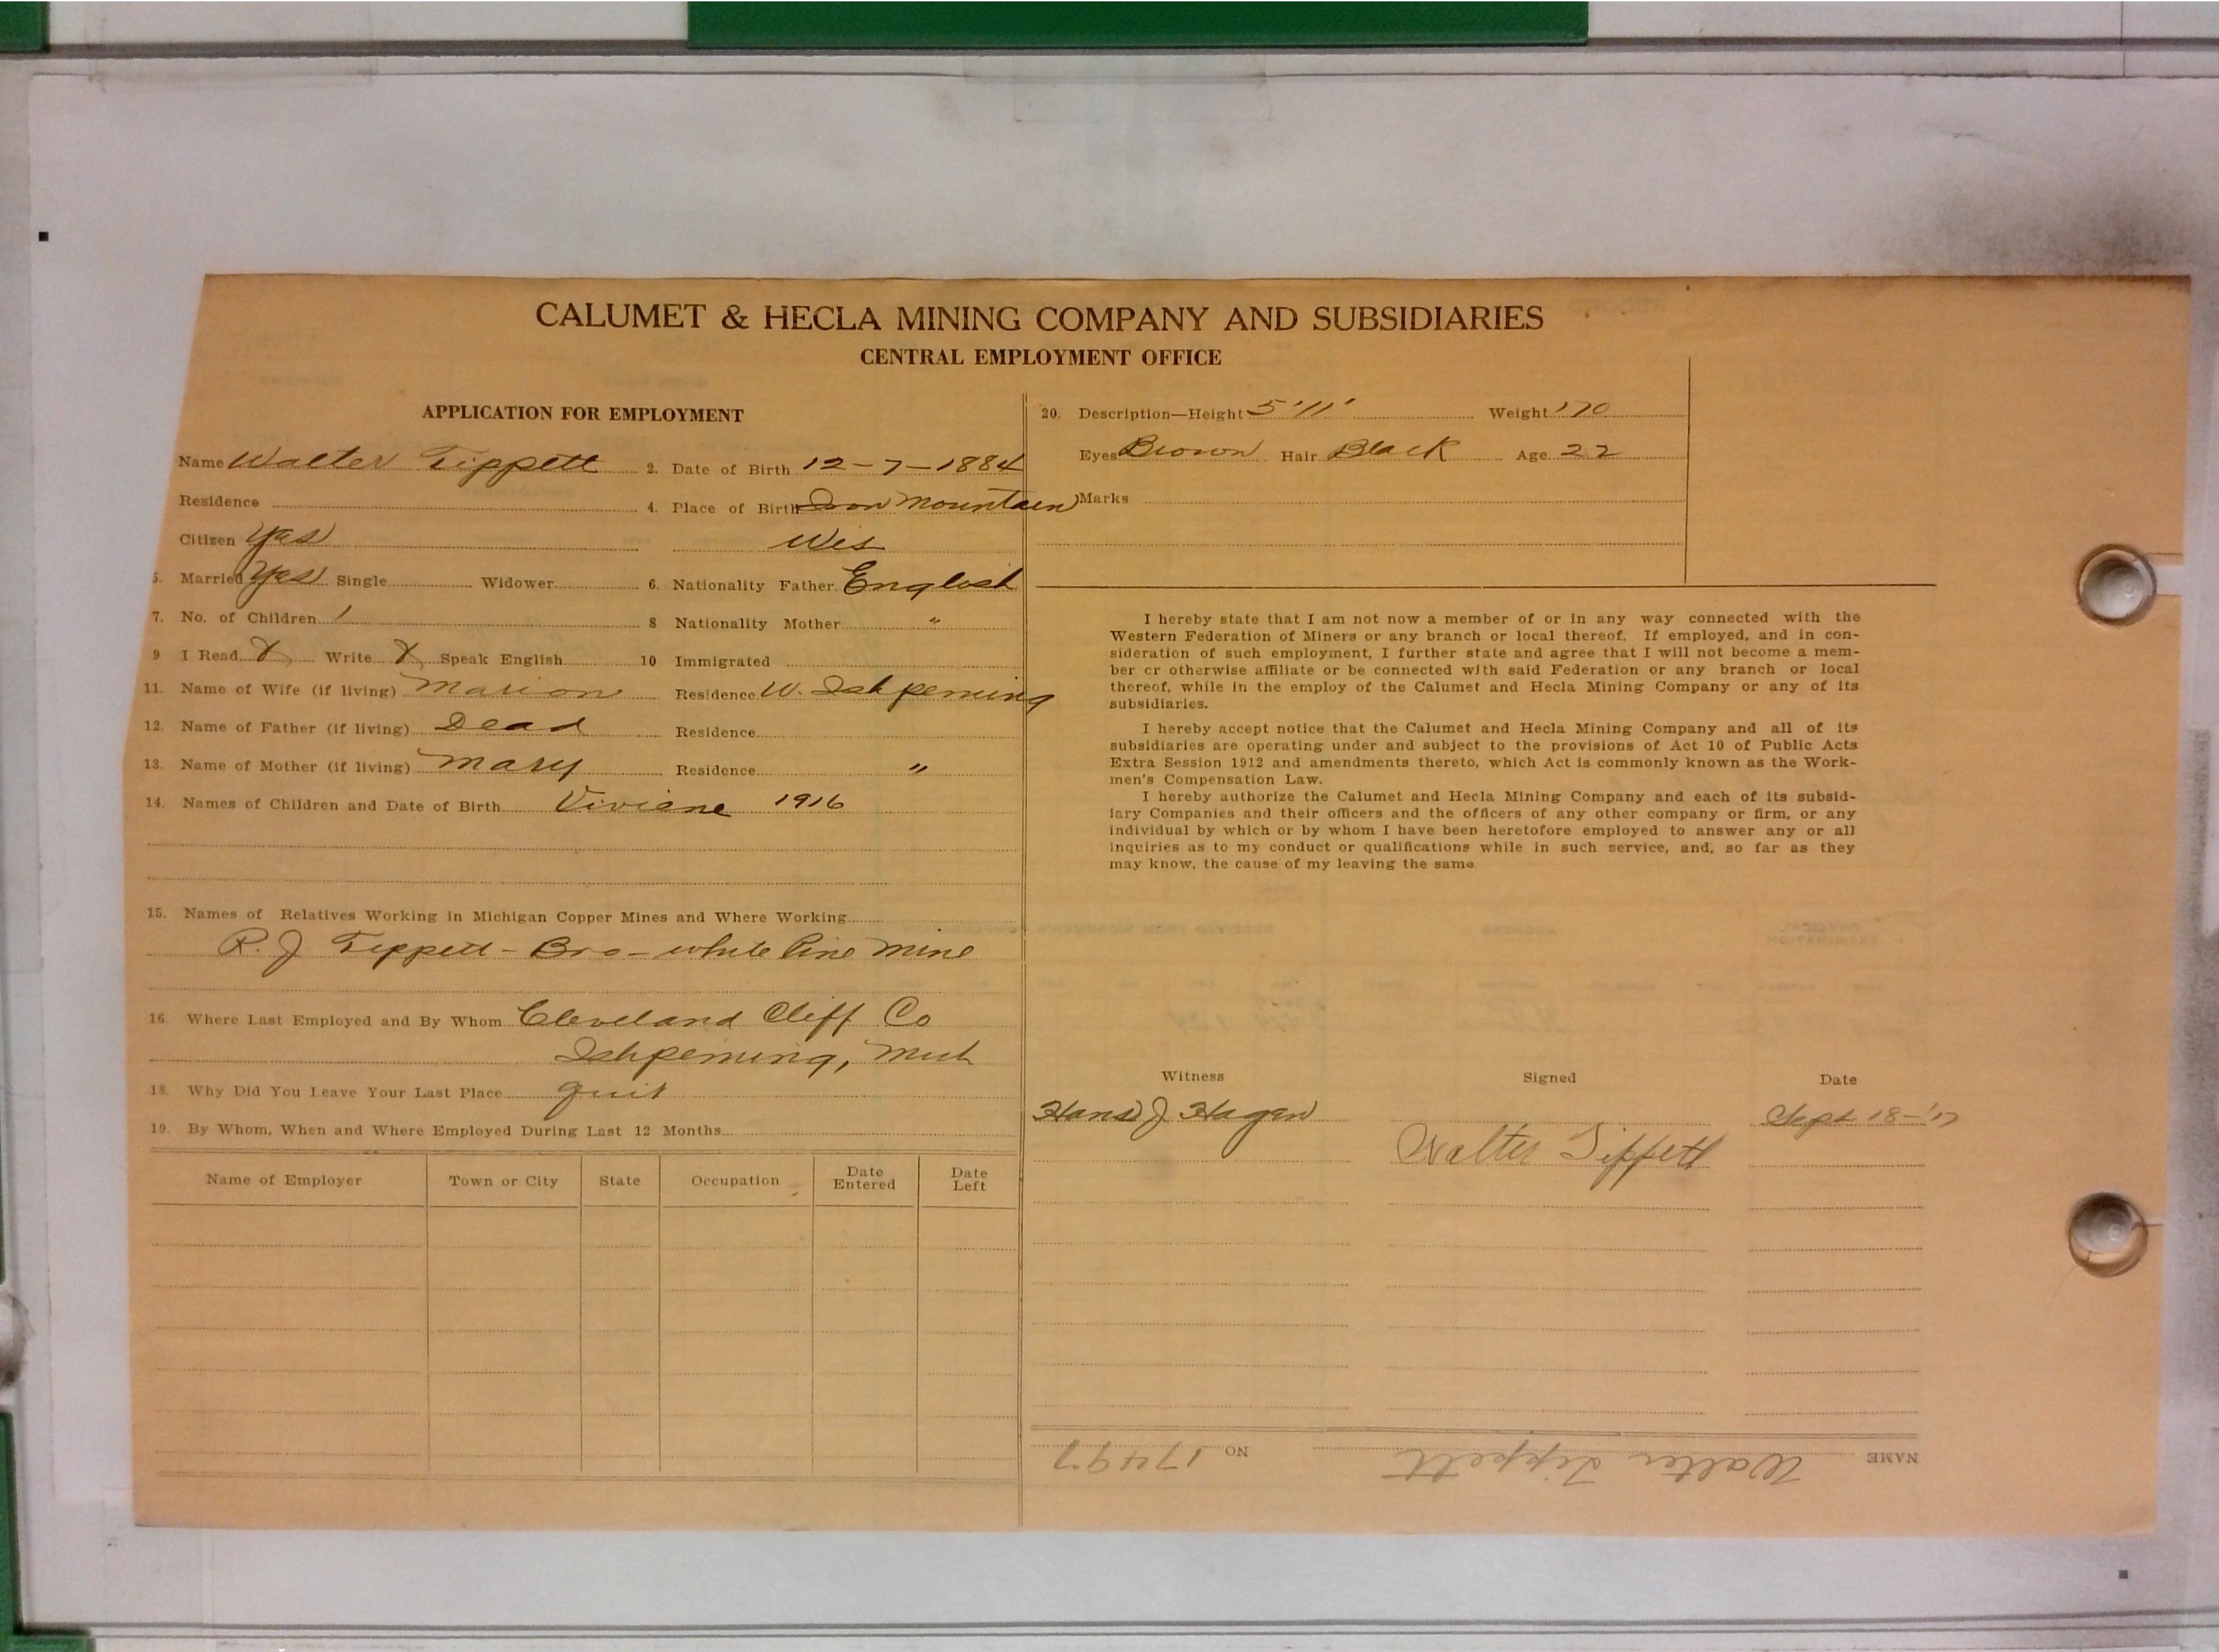 CALUMET & HECLA MINING COMPANY AND SUBSIDIARIES
CENTRAL EMPLOYMENT OFFICE
APPLICATION FOR EMPLOYMENT
Name Walter Tippett 2. Date of Birth 12-7-1884
Residence 4. Place of Birth Iron Mountain
Citizen Yes Wis
5. Married Yes Single Widower 6. Nationality Father English
7. No. of Children 1 8 Nationality Mother "
9 I Read X Write X Speak English 10 Immigrated
11. Name of Wife (if living) Marion Residence W. Ishpeming
12. Name of Father (if living) Dead Residence
13. Name of Mother (if living) Mary Residence "
14. Names of Children and Date of Birth Viviane 1916
15. Names of Relatives Working in Michigan Copper Mines and Where Working
R. J Tippett - Bro - White Pine Mine
16. Where Last Employed and By Whom Cleveland Cliff Co
Ishpeming, Mich
18. Why Did You Leave Your Last Place quit
19. By Whom, When and Where Employed During Last 12 Months
Name of Employer Town or City State Occupation Date Entered Date Left
20. Description—Height 5'11' Weight 170
Eyes Brown Hair Black Age 22
Marks
I hereby state that I am not now a member of or in any way connected with the
Western Federation of Miners or any branch or local thereof. If employed, and in con-
sideration of such employment, I further state and agree that I will not become a mem-
ber or otherwise affiliate or be connected with said Federation or any branch or local
thereof, while in the employ of the Calumet and Hecla Mining Company or any of its
subsidiaries.
I hereby accept notice that the Calumet and Hecla Mining Company and all of its
subsidiaries are operating under and subject to the provisions of Act 10 of Public Acts
Extra Session 1912 and amendments thereto, which Act is commonly known as the Work-
men's Compensation Law.
I hereby authorize the Calumet and Hecla Mining Company and each of its subsid-
iary Companies and their officers and the officers of any other company or firm, or any
individual by which or by whom I have been heretofore employed to answer any or all
inquiries as to my conduct or qualifications while in such service, and, so far as they
may know, the cause of my leaving the same.
Witness Signed Date
Hans J. Hagen Sept 18-'17
Walter Tippett
NAME Walter Tippett NO 17497